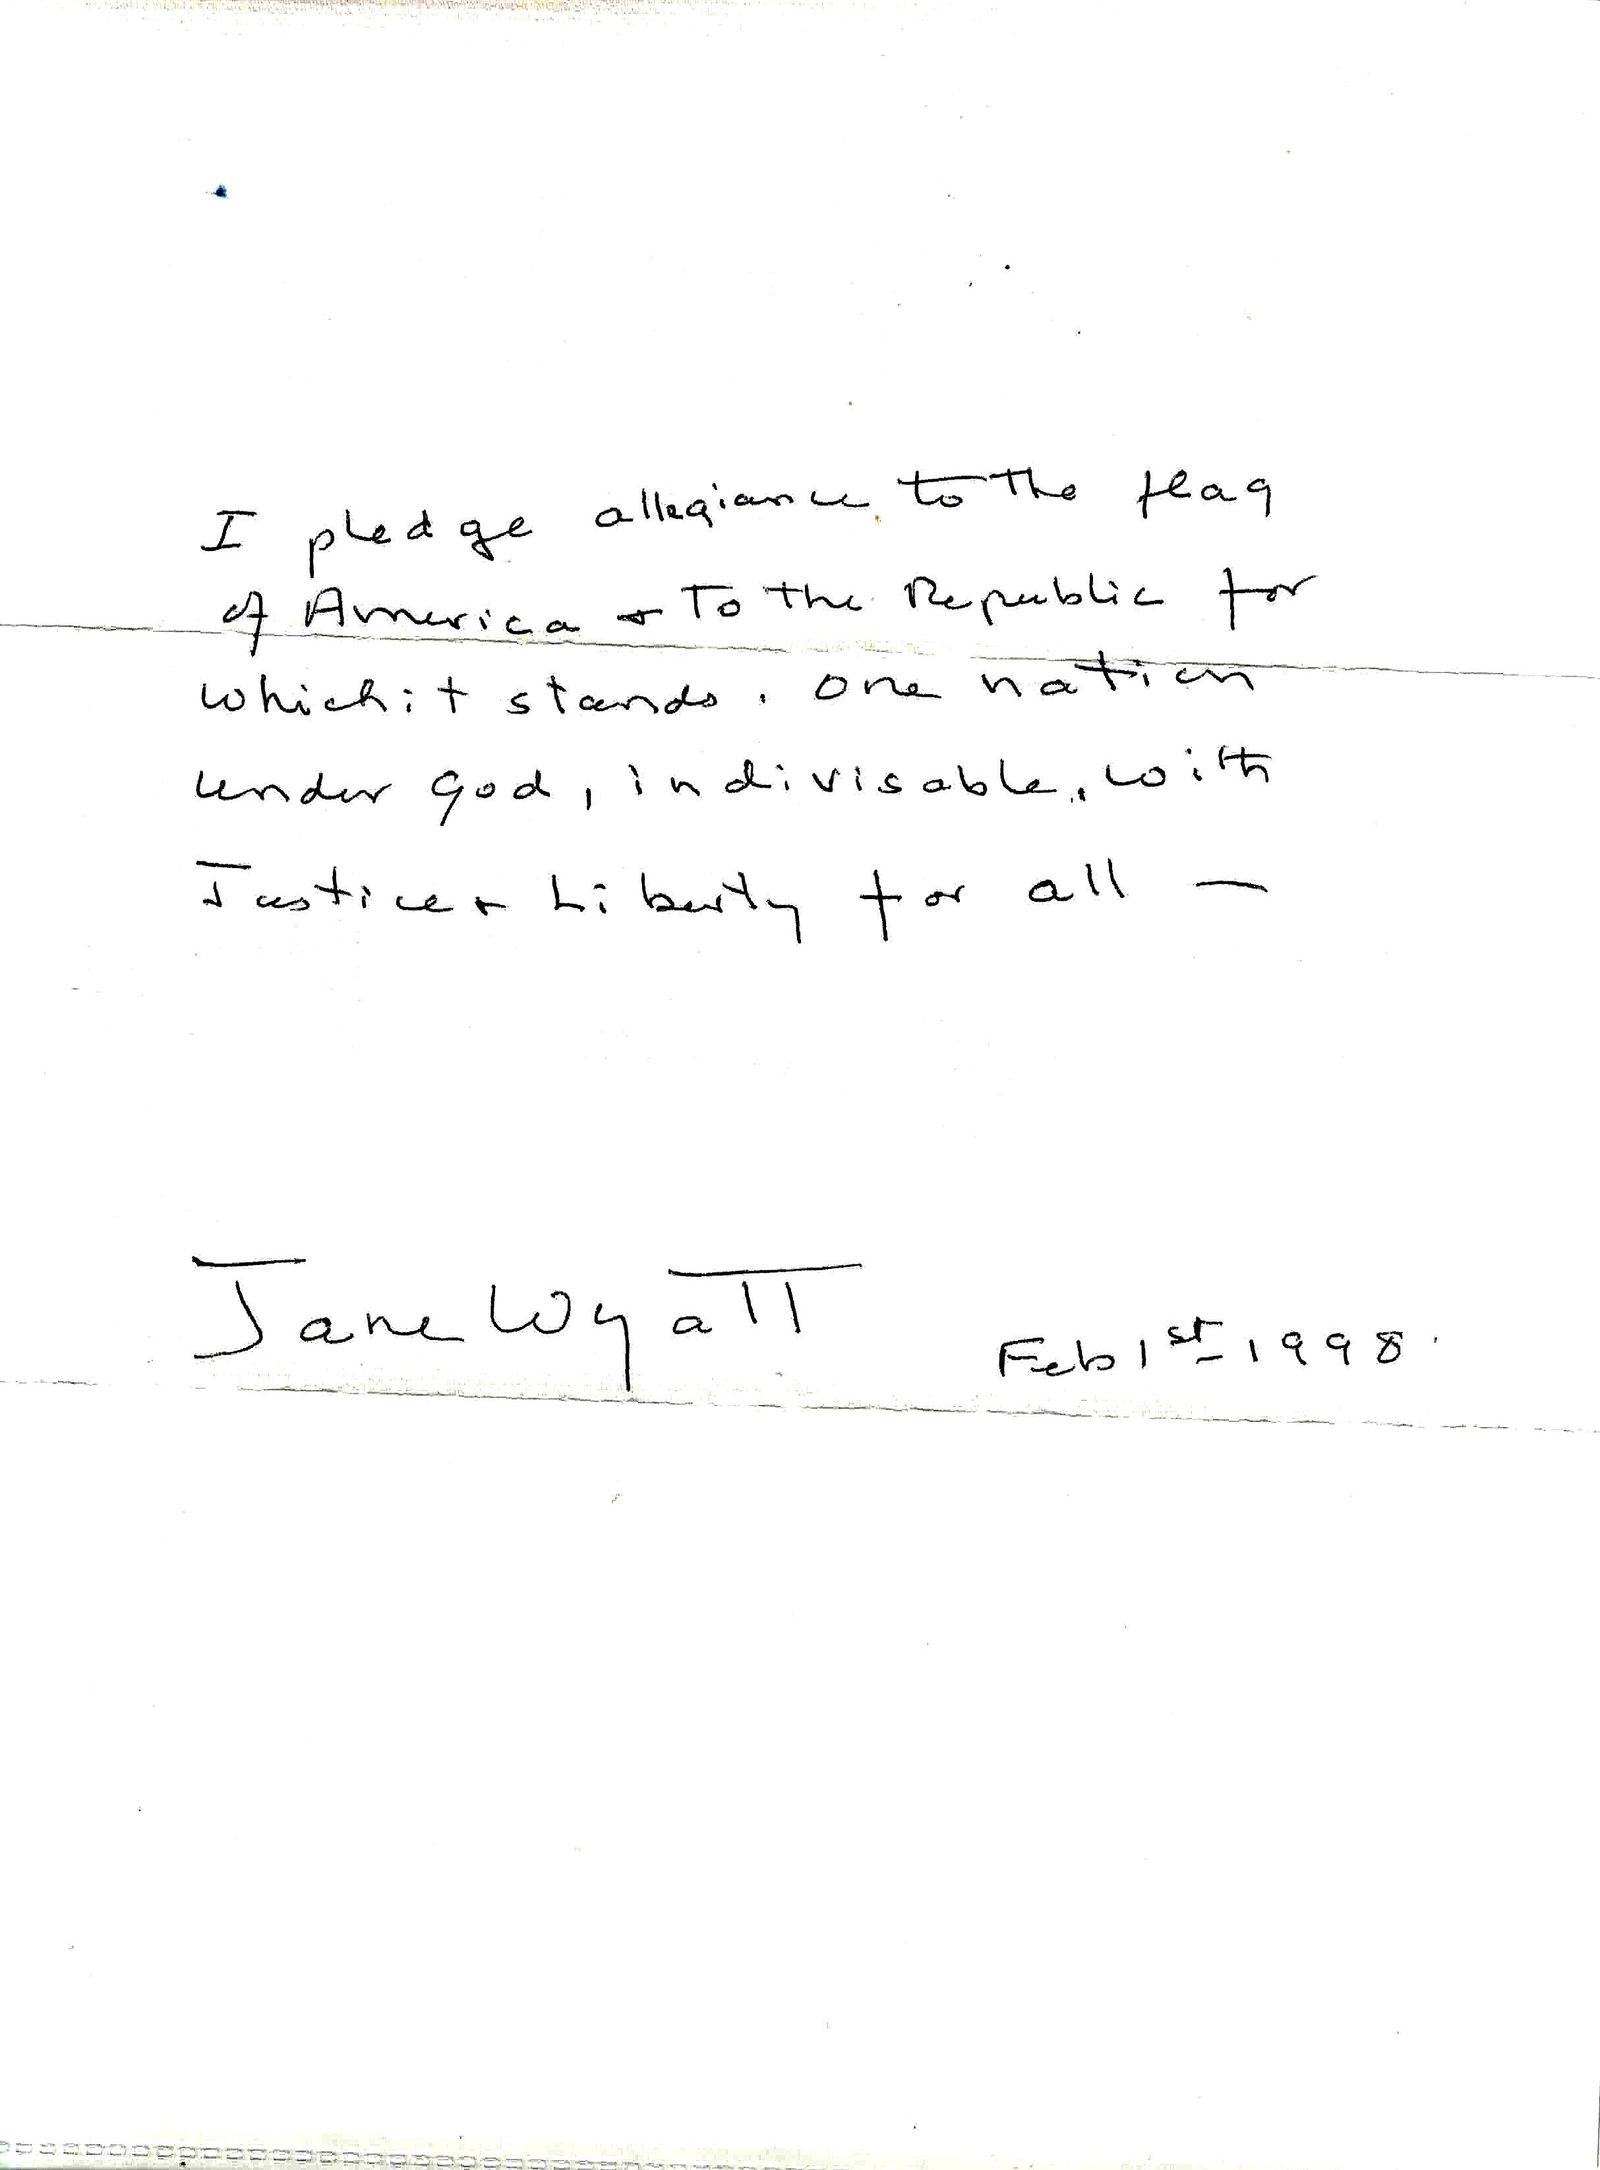 I pledge allegiance to the flag
of America & To the Republic for
which it stands. One nation
under god, indivisable, with
Justice & Liberty for all —
Jane Wyatt
Feb 1st 1998.